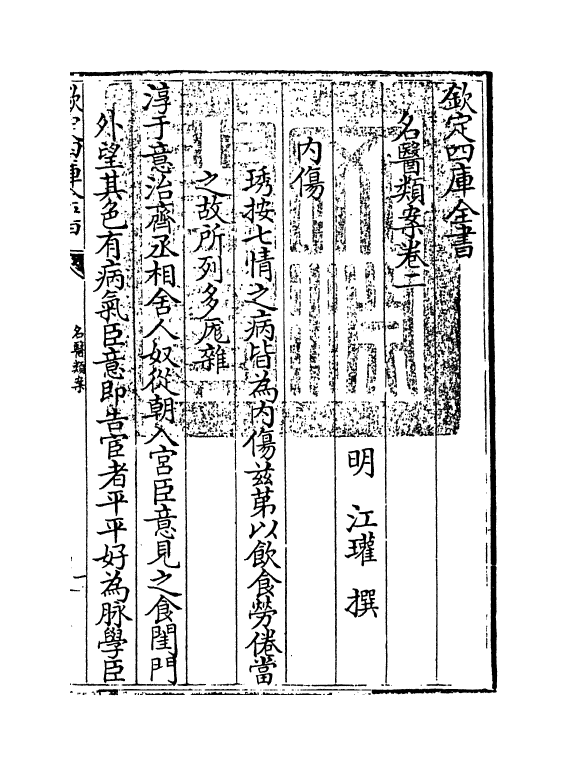 欽定四庫全書
名醫類案卷二
明 江瓘 撰
內傷
琇按七情之病皆為內傷兹第以飲食勞倦當
之故所列多厖雜
淳于意治齊丞相舍人奴從朝入宮臣意見之食閨門
外望其色有病氣臣意即告宦者平平好為脉學臣
欽定四庫全書
名醫類案